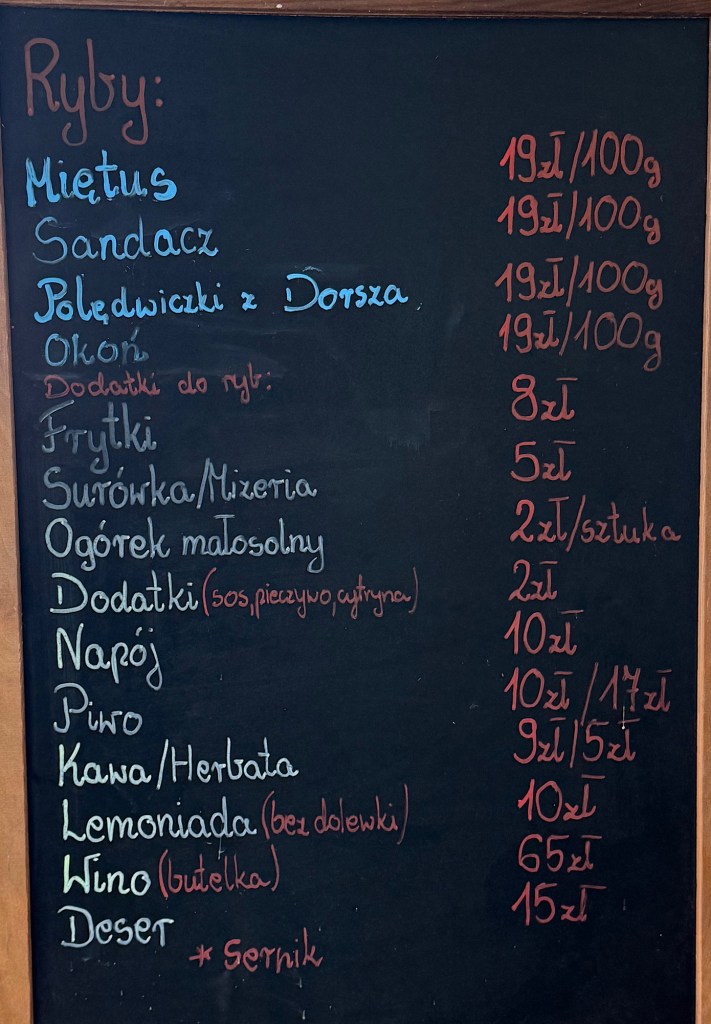 Ryby:
Miętus 19zł/100g
Sandacz 19zł/100g
Polędwiczki z Dorsza 19zł/100g
Okoń 19zł/100g
Dodatki do ryb:
Frytki 8zł
Surówka/Mizeria 5zł
Ogórek małosolny 2zł/sztuka
Dodatki (sos, pieczywo, cytryna) 2zł
Napój 10zł
Piwo 10zł/17zł
Kawa/Herbata 9zł/5zł
Lemoniada (bez dolewki) 10zł
Wino (butelka) 65zł
Deser 15zł
* Sernik